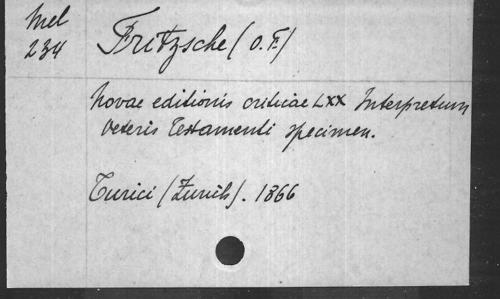 Mel
234
Fritzsche (O. F.)
Novae editionis criticae LXX Interpretum
Veteris Testamenti specimen.
Turici (Zurich). 1866